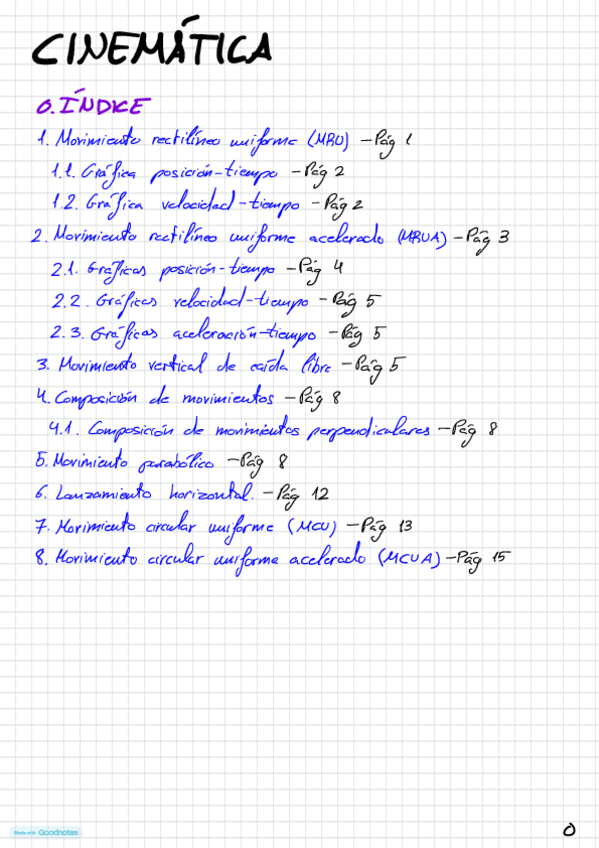 CINEMÁTICA
0. ÍNDICE
1. Movimiento rectilíneo uniforme (MRU) - Pág 1
1.1. Gráfica posición-tiempo - Pág 2
1.2. Gráfica velocidad-tiempo - Pág 2
2. Movimiento rectilíneo uniforme acelerado (MRUA) - Pág 3
2.1. Gráficas posición-tiempo - Pág 4
2.2. Gráficas velocidad-tiempo - Pág 5
2.3. Gráficas aceleración-tiempo - Pág 5
3. Movimiento vertical de caída libre - Pág 5
4. Composición de movimientos - Pág 8
4.1. Composición de movimientos perpendiculares - Pág 8
5. Movimiento parabólico - Pág 8
6. Lanzamiento horizontal. - Pág 12
7. Movimiento circular uniforme (MCU) - Pág 13
8. Movimiento circular uniforme acelerado (MCUA) - Pág 15
Made with Goodnotes
0